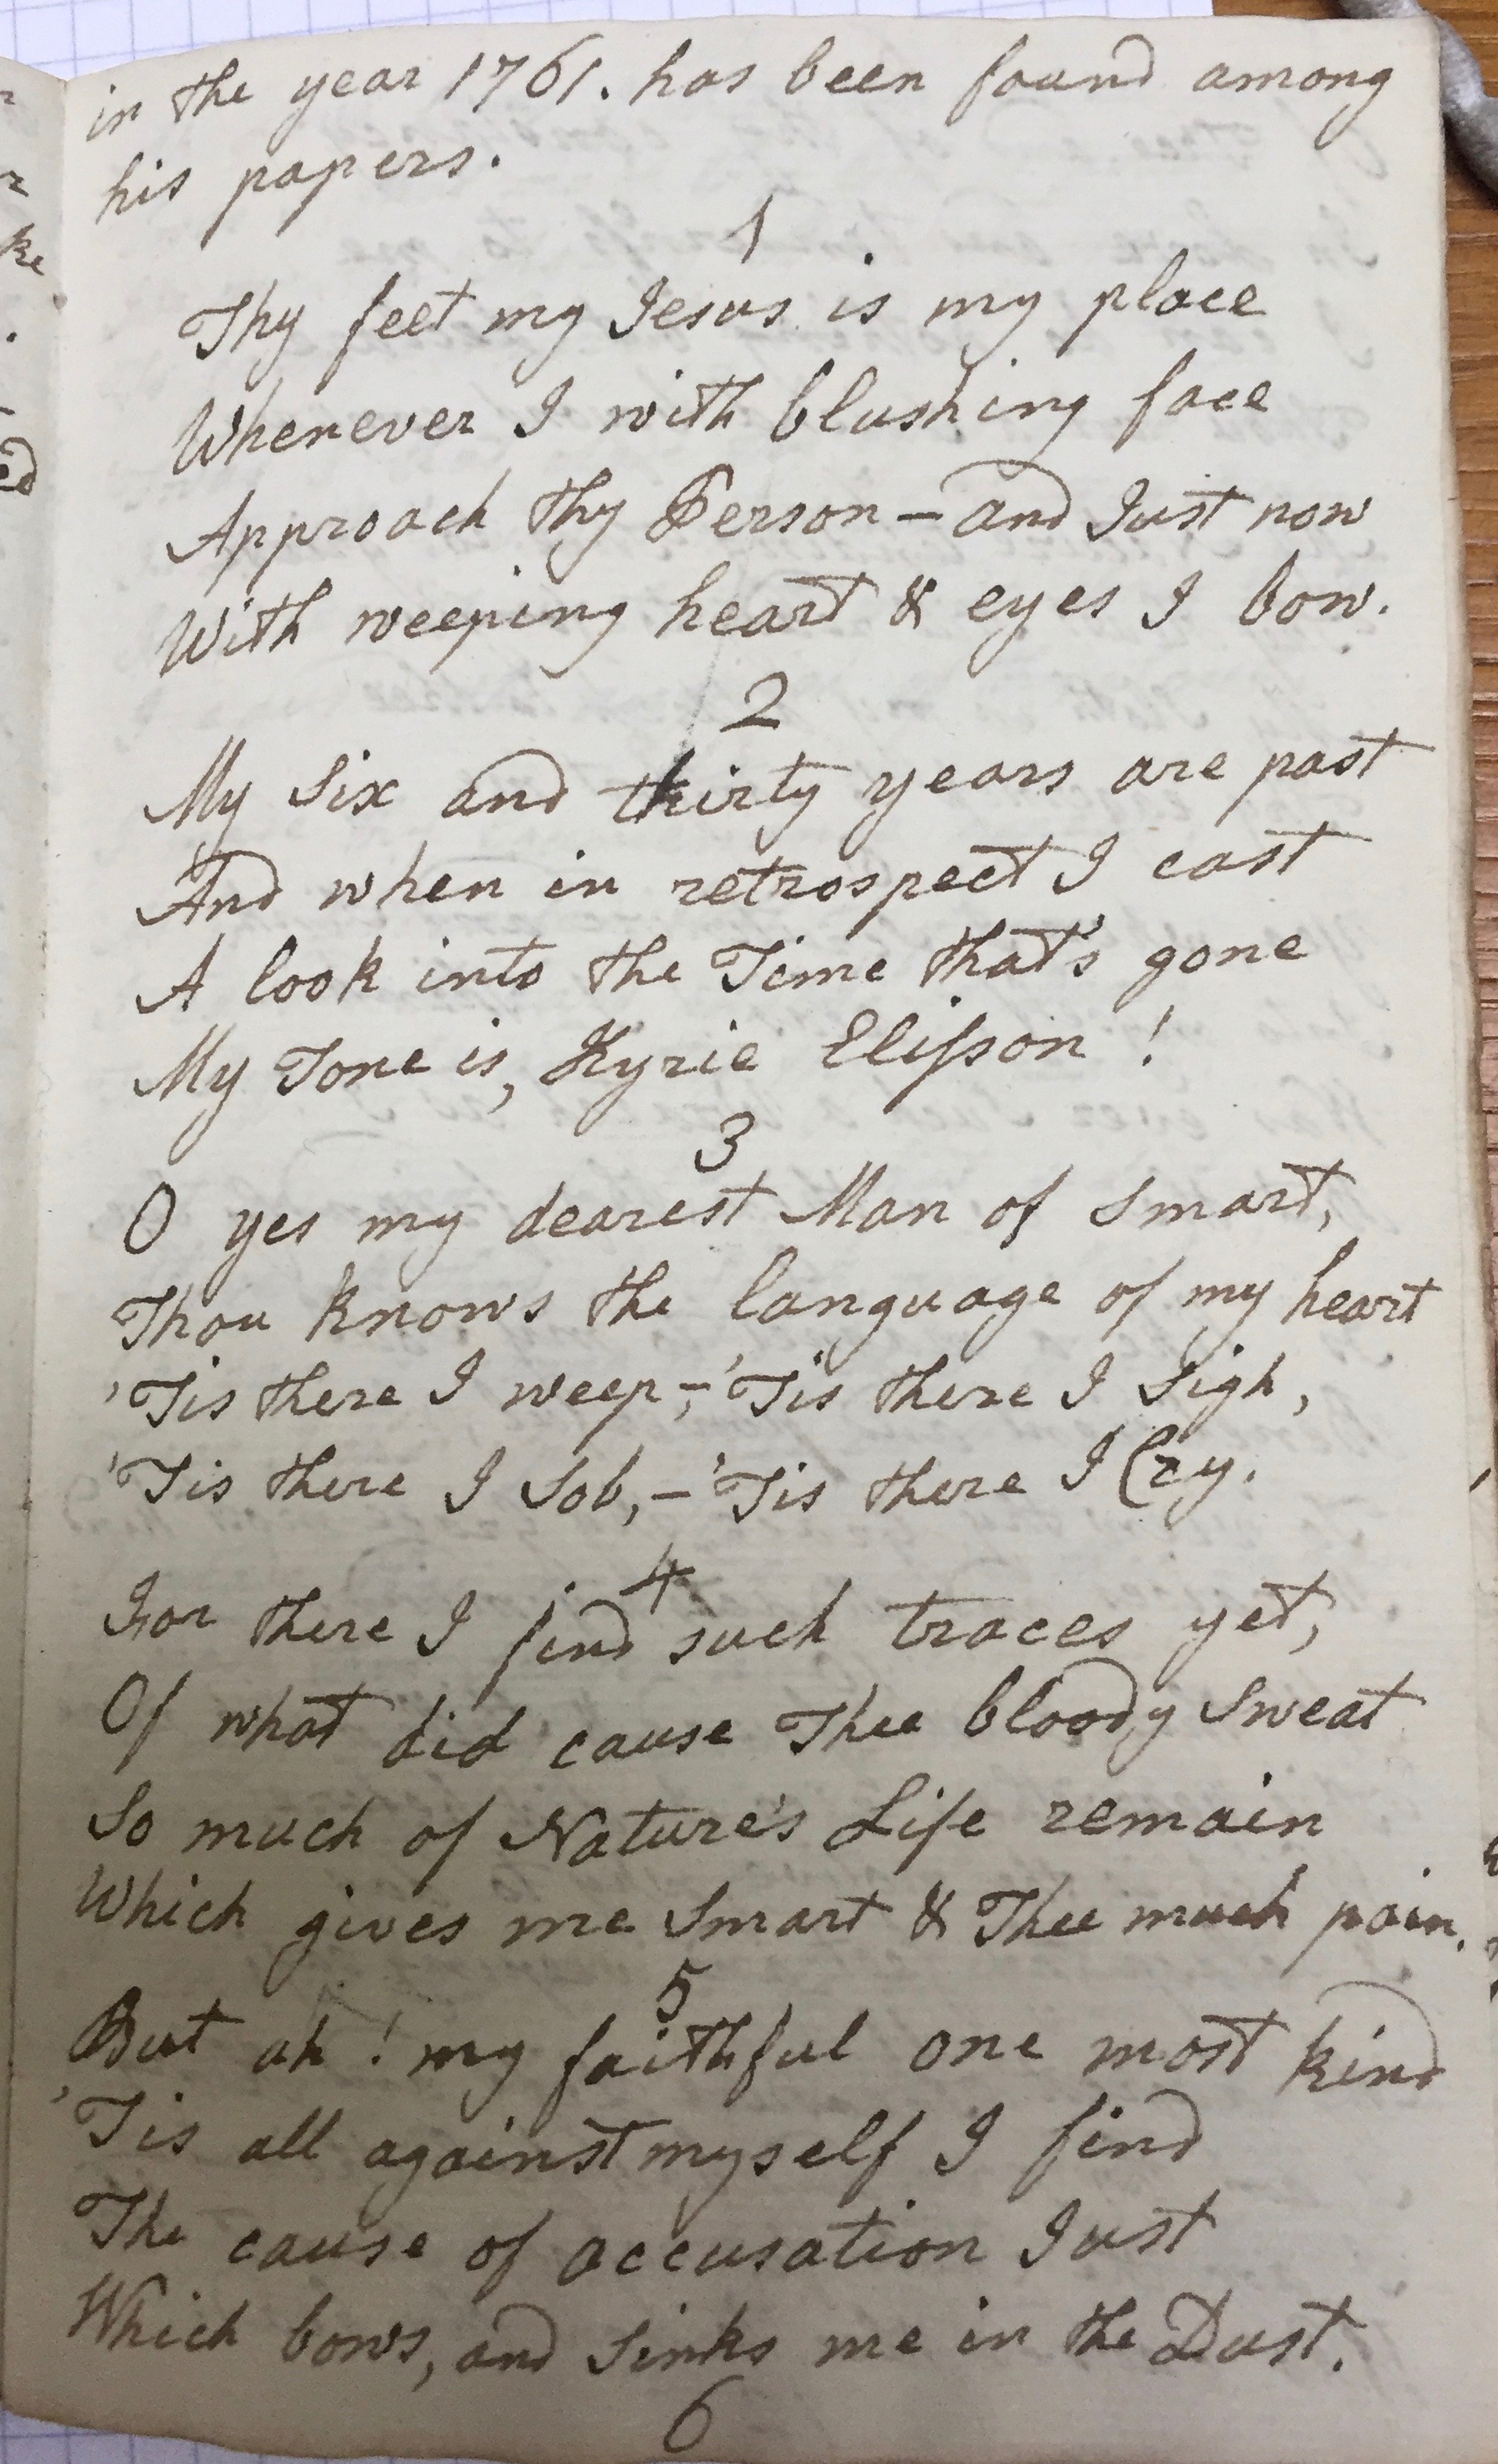 in the year 1761. has been found among
his papers.
1
Thy feet my Jesus is my place
Whenever I with blushing face
Approach thy Person – and Just now
With weeping heart & eyes I bow.
2
My Six and thirty years are past
And when in retrospect I cast
A look into the Time that's gone
My Tone is, Kyrie Eliſson!
3
O yes my dearest Man of Smart,
Thou knows the language of my heart
'Tis there I weep,– 'Tis there I Sigh,
'Tis there I Sob, – 'Tis there I Cry.
4
For there I find such traces yet,
Of what did cause Thee bloody Sweat
So much of Nature's Life remain
Which gives me Smart & Thee much pain.
5
But ah! my faithful one most kind
'Tis all against myself I find
The cause of accusation Just
Which bows, and Sinks me in the Dust.
6